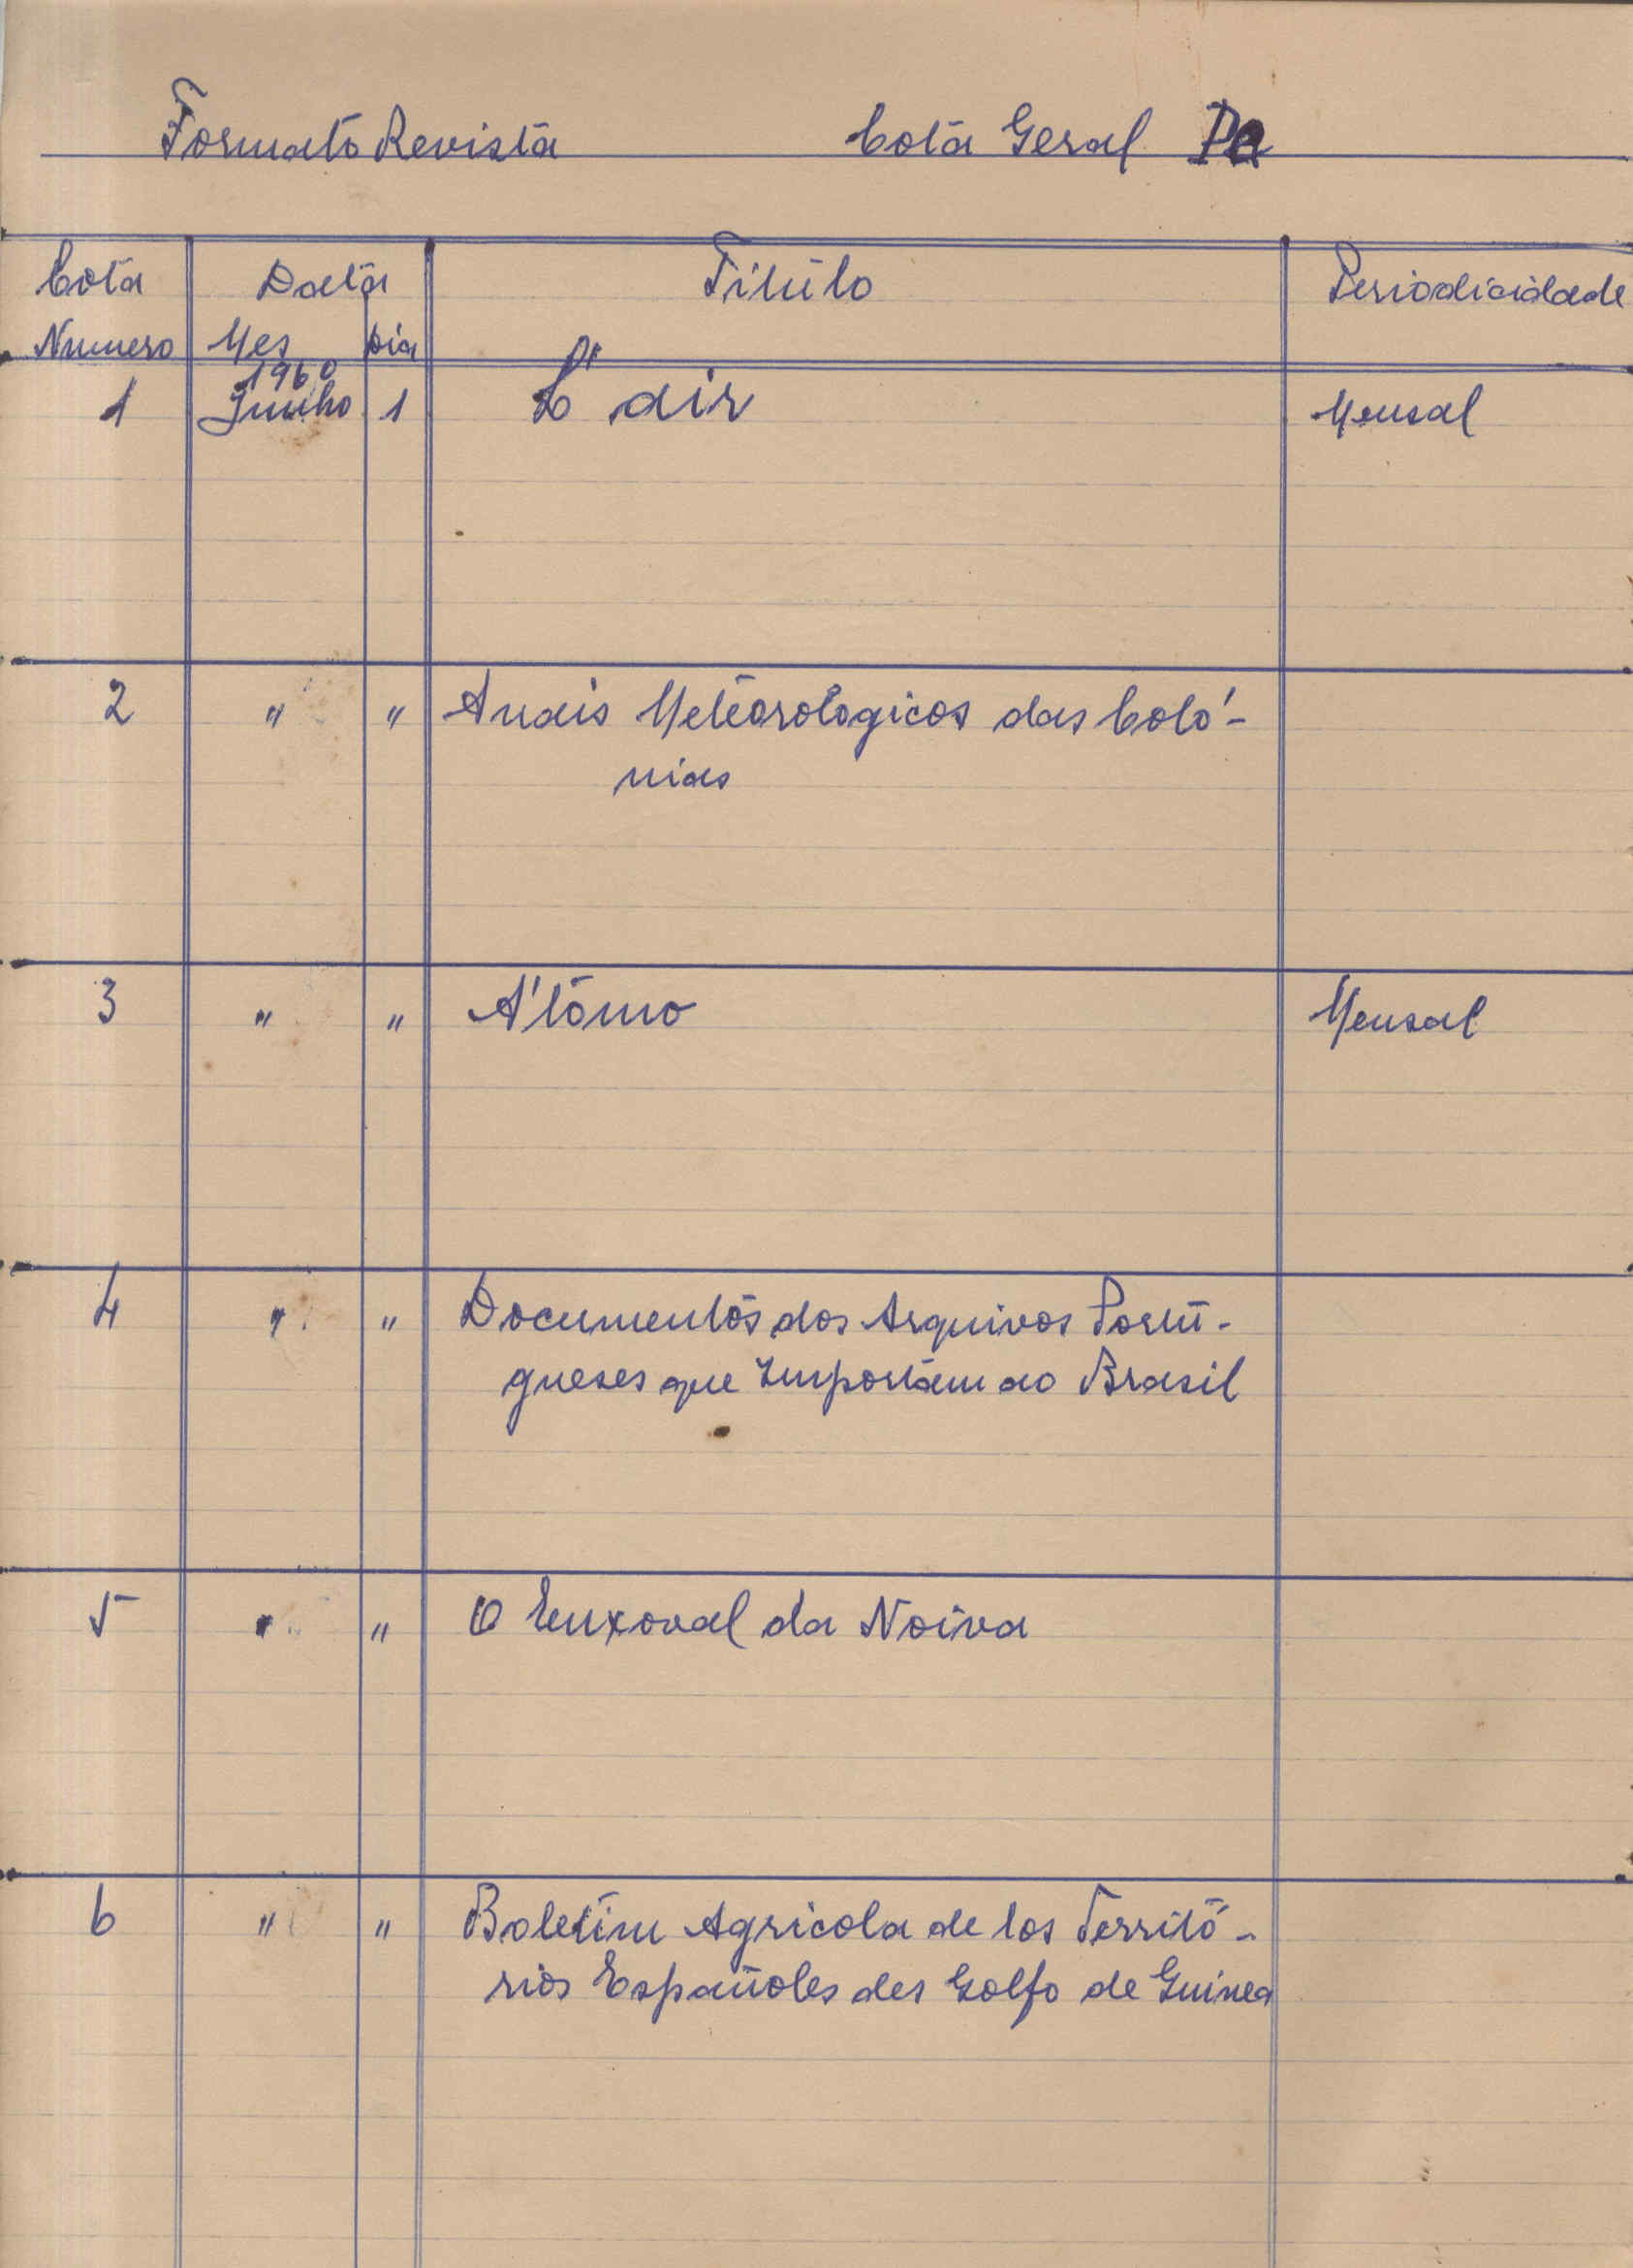 Formato Revista Cota Geral Pa
Cota Data Titulo Periodicidade
Numero Mes Dia
1960
1 Junho 1 L'air Mensal
2 " " Anais Meteorologicos das Coló-
nias
3 " " Átomo Mensal
4 " " Documentos dos Arquivos Portu-
gueses que Importam ao Brasil
5 " " O Enxoval da Noiva
6 " " Boletim Agricola de los Territó-
rios Españoles des Golfo de Guinea